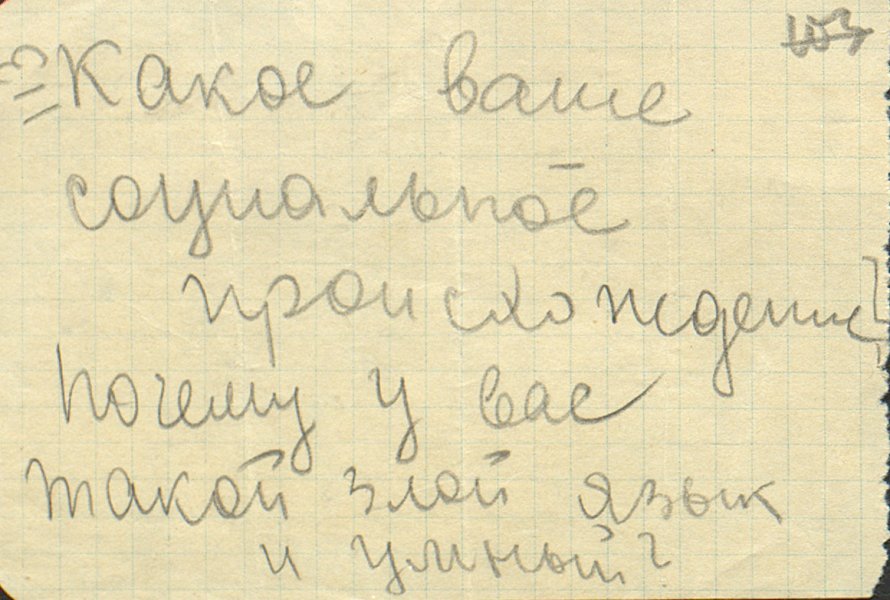 Какое ваше
социальное
происхождение
Почему у вас
такой злой язык
и умный?